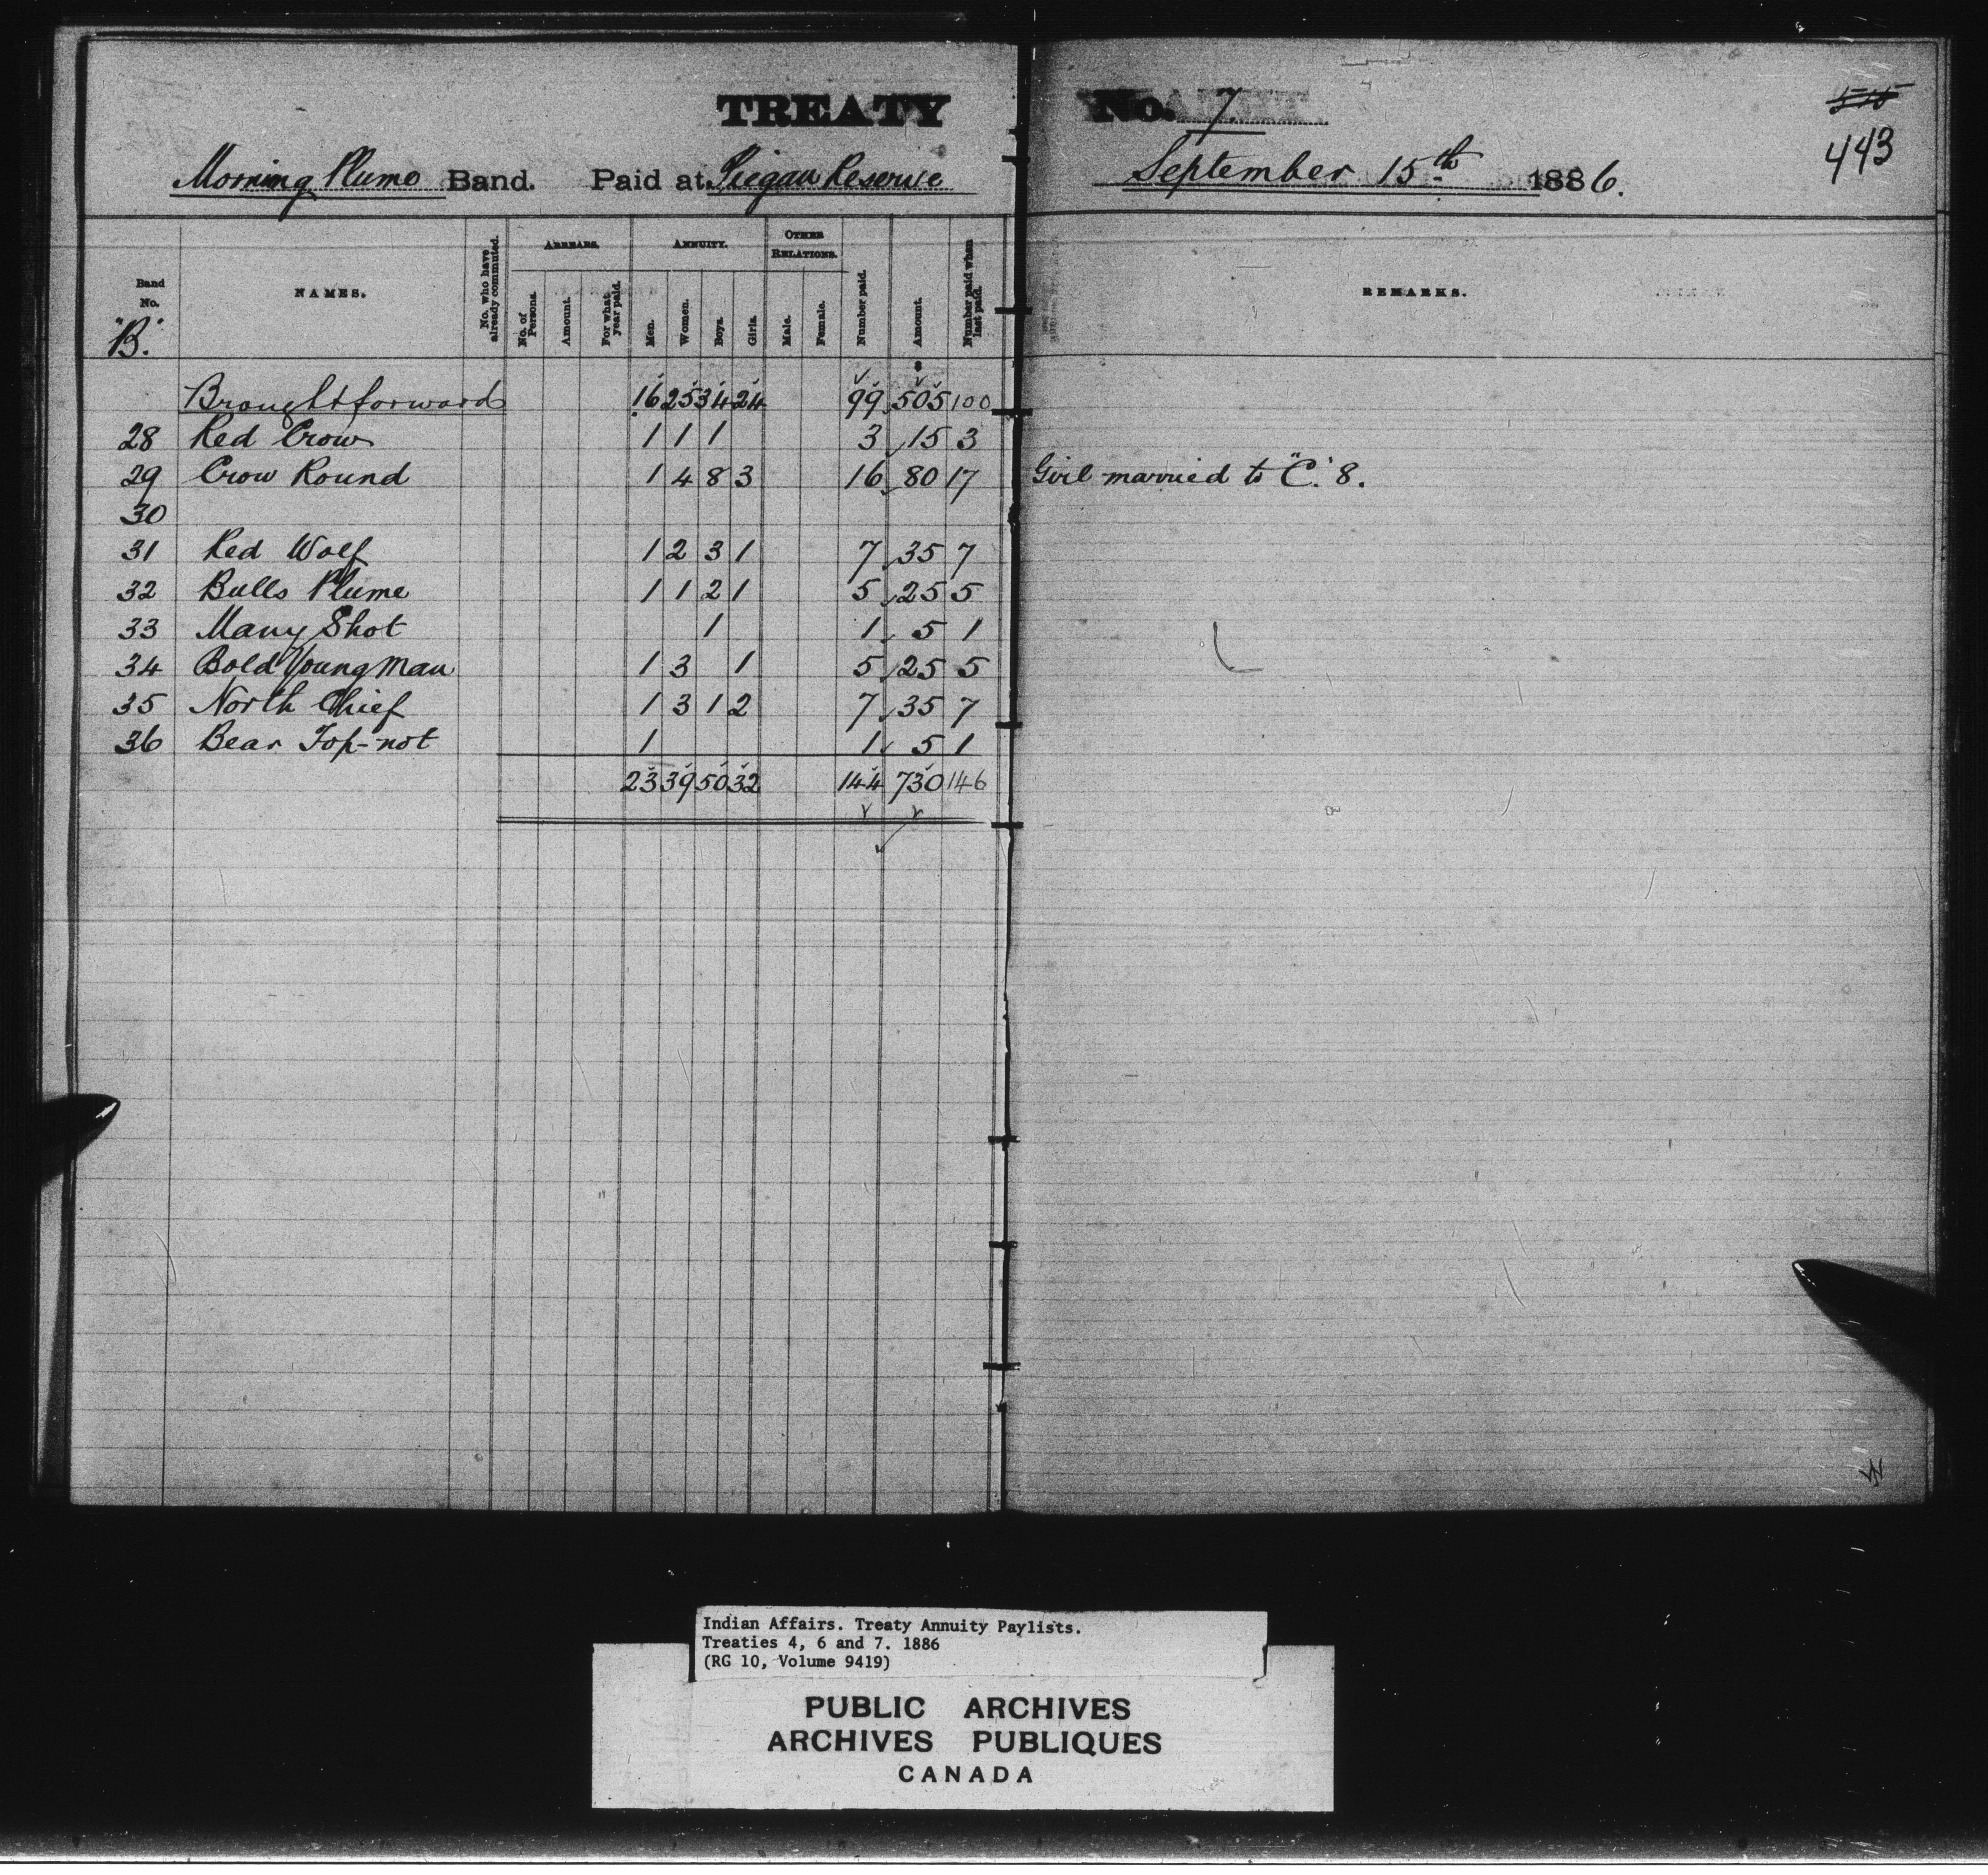 TREATY No. 7.
515
443
Morning Plume Band. Paid at Piegan Reserve September 15th 1886.
Band No. "B." NAMES. No. who have already commuted. ARREARS. No. of Persons. Amount. For what year paid. ANNUITY. Men. Women. Boys. Girls. OTHER RELATIONS. Male. Female. Number paid. Amount. Number paid when last paid. REMARKS.
Brought forward 16 25 34 24 99 505 100
28 Red Crow 1 1 1 3 15 3
29 Crow Round 1 4 8 3 16 80 17 Girl married to "C." 8.
30
31 Red Wolf 1 2 3 1 7 35 7
32 Bulls Plume 1 1 2 1 5 25 5
33 Many Shot 1 1 5 1
34 Bold Young Man 1 3 1 5 25 5
35 North Chief 1 3 1 2 7 35 7
36 Bear Top-not 1 1 5 1
23 39 50 32 144 730 146
Indian Affairs. Treaty Annuity Paylists.
Treaties 4, 6 and 7. 1886
(RG 10, Volume 9419)
PUBLIC ARCHIVES
ARCHIVES PUBLIQUES
CANADA